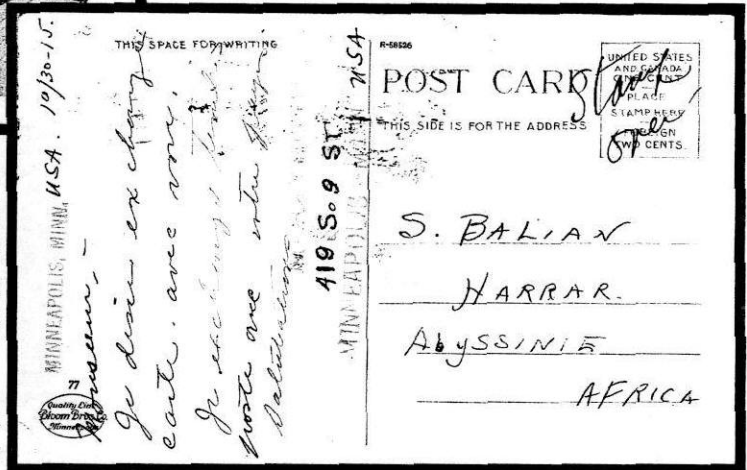 THIS SPACE FOR WRITING
MINNEAPOLIS, MINN. USA. 10/30-15.
Monsieur, -
Je desire exchange
carte. avec vous.
Je exchange
poste avec votre
Salutation
419 So. 9 ST
MINNEAPOLIS USA
77
Quality Line
Bloom Bros. Co.
Minneapolis
R-58526
POST CARD
THIS SIDE IS FOR THE ADDRESS
UNITED STATES
AND CANADA
ONE CENT
PLACE
STAMP HERE
FOREIGN
TWO CENTS
Stamp
over
S. BALIAN
HARRAR.
AbySSINIE
AFRICA